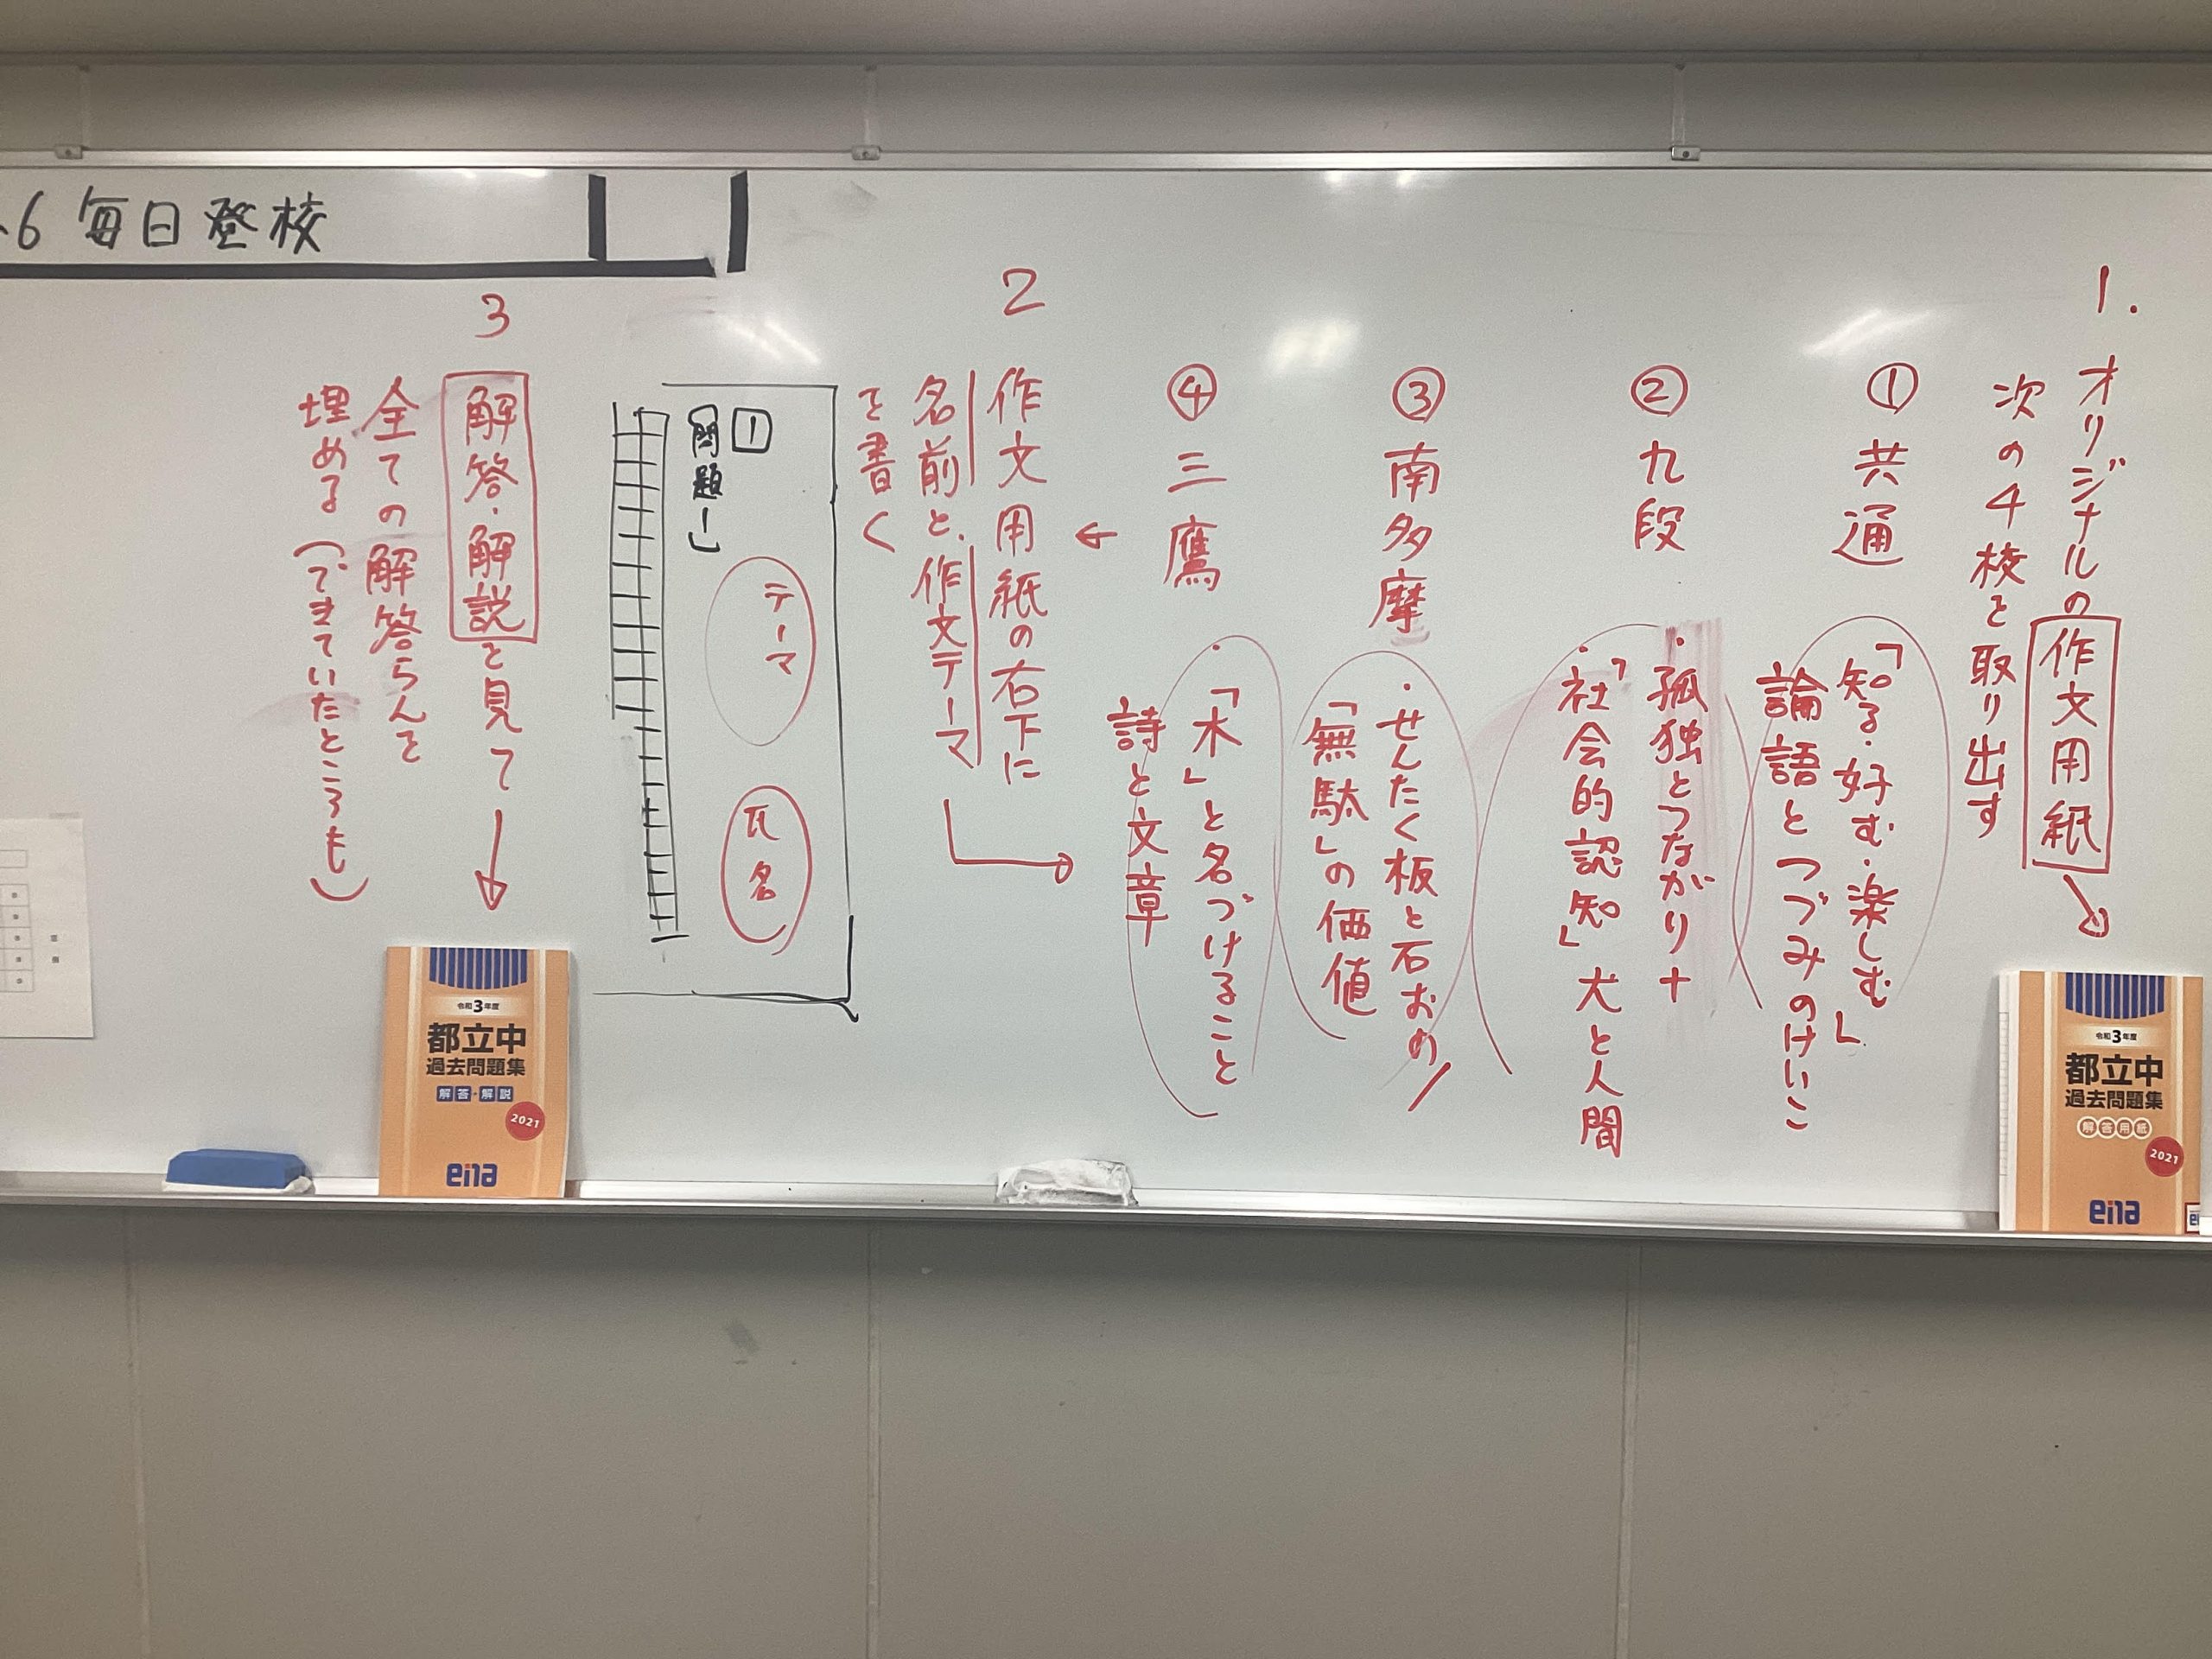 1.
オリジナルの作文用紙
次の4校を取り出す
①共通
「知る・好む・楽しむ」
論語とつづみのけいこ
②九段
・孤独とつながり+
・「社会的認知」犬と人間
③南多摩
・せんたく板と石おの/
「無駄」の価値
④三鷹
・「木」と名づけること
詩と文章
2
作文用紙の右下に
名前と、作文テーマ
を書く
1
問題1
テーマ
氏名
3
解答・解説を見て
全ての解答らんを
埋める(できていたところも)
6毎日登校
令和3年度
都立中
過去問題集
解答用紙
2021
ena
令和3年度
都立中
過去問題集
解答・解説
2021
ena